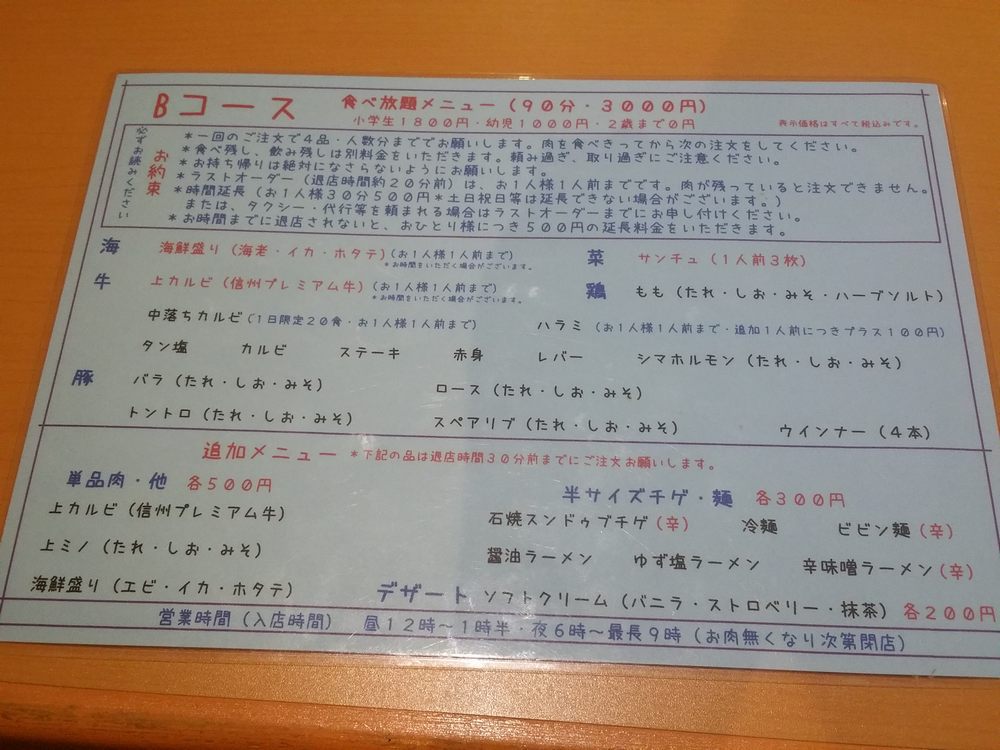 Bコース 食べ放題メニュー（９０分・３０００円）
小学生１８００円・幼児１０００円・２歳まで０円 表示価格はすべて税込みです。
必ずお読みください
お約束
＊一回のご注文で４品・人数分まででお願いします。肉を食べきってから次の注文をしてください。
＊食べ残し、飲み残しは別料金をいただきます。頼み過ぎ、取り過ぎにご注意ください。
＊お持ち帰りは絶対になさらないようにお願いします。
＊ラストオーダー（退店時間約２０分前）は、お１人様１人前までです。肉が残っていると注文できません。
＊時間延長（お１人様３０分５００円＊土日祝日等は延長できない場合がございます。）
または、タクシー・代行等を頼まれる場合はラストオーダーまでにお申し付けください。
＊お時間までに退店されないと、おひとり様につき５００円の延長料金をいただきます。
海 海鮮盛り（海老・イカ・ホタテ）（お１人様１人前まで） 菜 サンチュ（１人前３枚）
＊お時間をいただく場合がございます。
牛 上カルビ（信州プレミアム牛）（お１人様１人前まで） 鶏 もも（たれ・しお・みそ・ハーブソルト）
＊お時間をいただく場合がございます。
中落ちカルビ（１日限定２０食・お１人様１人前まで） ハラミ（お１人様１人前まで・追加１人前につきプラス１００円）
タン塩 カルビ ステーキ 赤身 レバー シマホルモン（たれ・しお・みそ）
豚 バラ（たれ・しお・みそ） ロース（たれ・しお・みそ）
トントロ（たれ・しお・みそ） スペアリブ（たれ・しお・みそ） ウインナー（４本）
追加メニュー ＊下記の品は退店時間３０分前までにご注文お願いします。
単品肉・他 各５００円
上カルビ（信州プレミアム牛）
上ミノ（たれ・しお・みそ）
海鮮盛り（エビ・イカ・ホタテ）
半サイズチゲ・麺 各３００円
石焼スンドゥブチゲ（辛） 冷麺 ビビン麺（辛）
醤油ラーメン ゆず塩ラーメン 辛味噌ラーメン（辛）
デザート ソフトクリーム（バニラ・ストロベリー・抹茶） 各２００円
営業時間（入店時間） 昼１２時～１時半・夜６時～最長９時（お肉無くなり次第閉店）